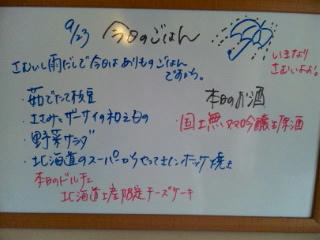 9/23 今日のごはん
さむいし雨だしで今日はありものごはん
ですよっ。
いきなり
さむいよぉ!
・茹でたて枝豆
・ささみとザーサイの和えもの
・野菜サラダ
・北海道のスーパーからやってきたホッケ焼き
本日のお酒
・国士無双 吟醸生原酒
本日のドルチェ
北海道土産 限定チーズケーキ